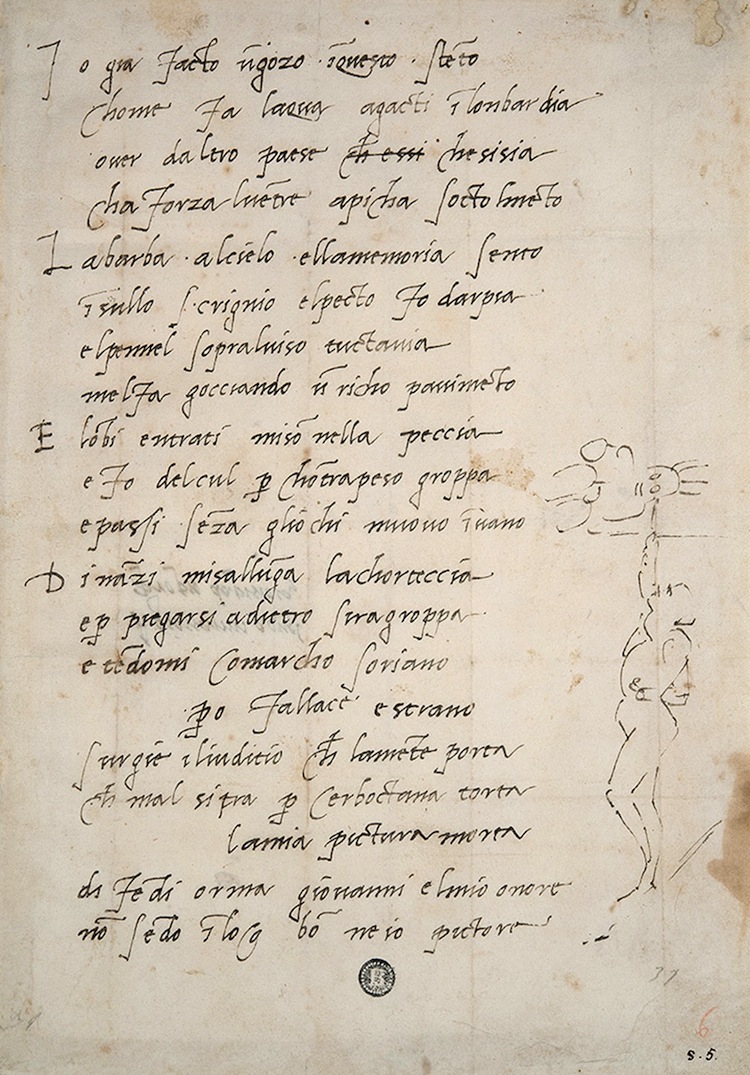 Io gia facto ūgozo īquesto stēto
chome fa laqua agacti īlonbardia
over daltro paese ch̄ essi chesisia
cha forza lvētre apicha socto lmēto
La barba alcielo ellamemoria sento
īsullo scrignio elpecto fo darpia
elpennel sopralviso tuctavia
melfa gocciando ū richo pavimēto
E lōbi entrati misō nella peccia
e fo delcul p̱ chōtrapeso groppa
epassi sēza gliochi muovo īvano
Dināzi misallūga lachorteccia
ep̱ piegarsi adietro siragroppa
e tēdomi Comarcho soriano
p̱o fallace estrano
surgie iliuditio ch̄ lamēte porta
ch̄ mal sitra p̱ cerboctana torta
lamia pictura morta
difēdi orma giovanni elmio onore
nō sēdo īlog bō neio pictore
6
s. 5.